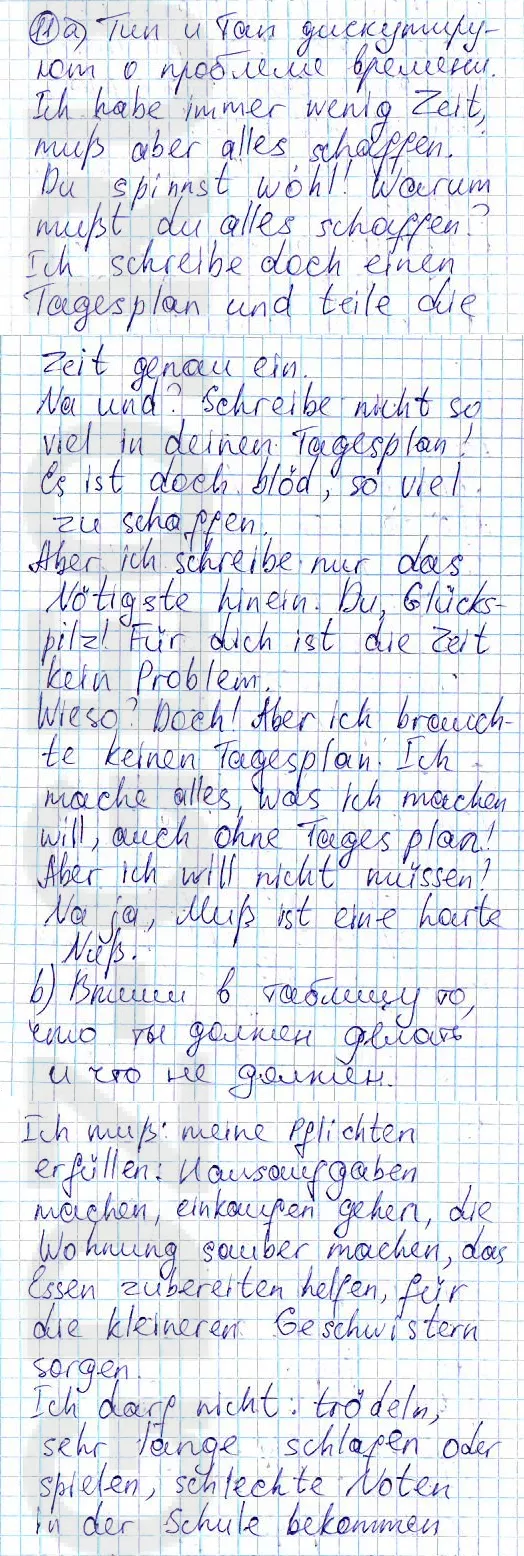 11 a) Тип и Топ дискутиру-
ют о проблеме времени.
Ich habe immer wenig Zeit,
muß aber alles schaffen.
Du spinnst wohl! Warum
mußt du alles schaffen?
Ich schreibe doch einen
Tagesplan und teile die
Zeit genau ein.
Na und? Schreibe nicht so
viel in deinen Tagesplan!
Es ist doch blöd, so viel
zu schaffen.
Aber ich schreibe nur das
Nötigste hinein. Du, Glücks-
pilz! Für dich ist die Zeit
kein Problem.
Wieso? Doch! Aber ich brauch-
te keinen Tagesplan. Ich
mache alles, was ich machen
will, auch ohne Tages plan!
Aber ich will nicht müssen!
Na ja, Muß ist eine harte
Nuß.
b) Впиши в таблицу то,
что ты должен делать
и что не должен.
Ich muß: meine Pflichten
erfüllen: Hausaufgaben
machen, einkaufen gehen, die
Wohnung sauber machen, das
Essen zubereiten helfen, für
die kleineren Geschwistern
sorgen.
Ich darf nicht: trödeln,
sehr lange schlafen oder
spielen, schlechte Noten
in der Schule bekommen